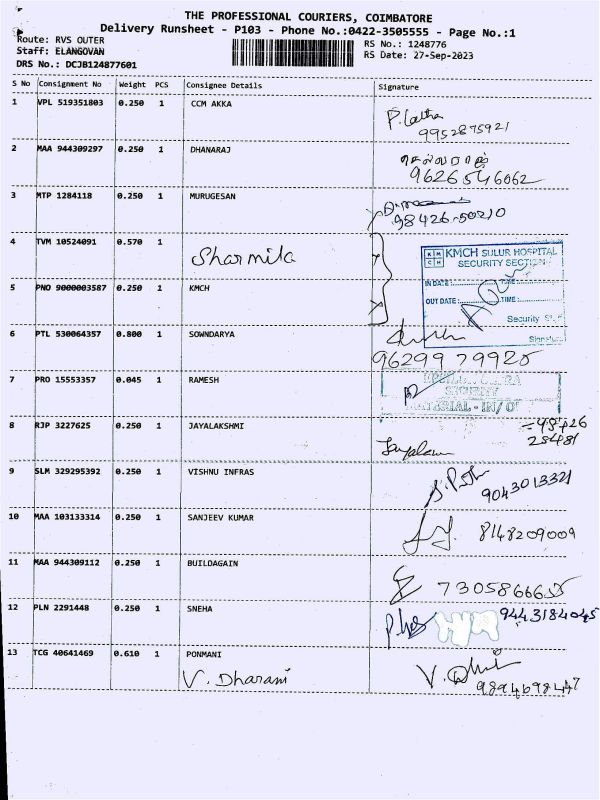 THE PROFESSIONAL COURIERS, COIMBATORE
Delivery Runsheet - P103 - Phone No.:0422-3505555 - Page No.:1
Route: RVS OUTER
Staff: ELANGOVAN
DRS No.: DCJB124877601
RS No.: 1248776
RS Date: 27-Sep-2023
S No Consignment No Weight PCS Consignee Details Signature
1 VPL 519351803 0.250 1 CCM AKKA P. Latha
9952875921
2 MAA 944309297 0.250 1 DHANARAJ செல்வராஜ்
9626546062
3 MTP 1284118 0.250 1 MURUGESAN
98426-50210
4 TVM 10524091 0.570 1 Sharmila
KMCH SULUR HOSPITAL
SECURITY SECTION
IN DATE: TIME:
OUT DATE: TIME:
Security
5 PNO 9000003587 0.250 1 KMCH
6 PTL 530064357 0.800 1 SOWNDARYA
96299 79925
7 PRO 15553357 0.045 1 RAMESH
SECURITY
MATERIAL - IN/O
8 RJP 3227625 0.250 1 JAYALAKSHMI
28481
9 SLM 329295392 0.250 1 VISHNU INFRAS
9043013321
10 MAA 103133314 0.250 1 SANJEEV KUMAR
8148209009
11 MAA 944309112 0.250 1 BUILDAGAIN
7305866655
12 PLN 2291448 0.250 1 SNEHA
9443184045
13 TCG 40641469 0.610 1 PONMANI
V. Dharani
9894698447